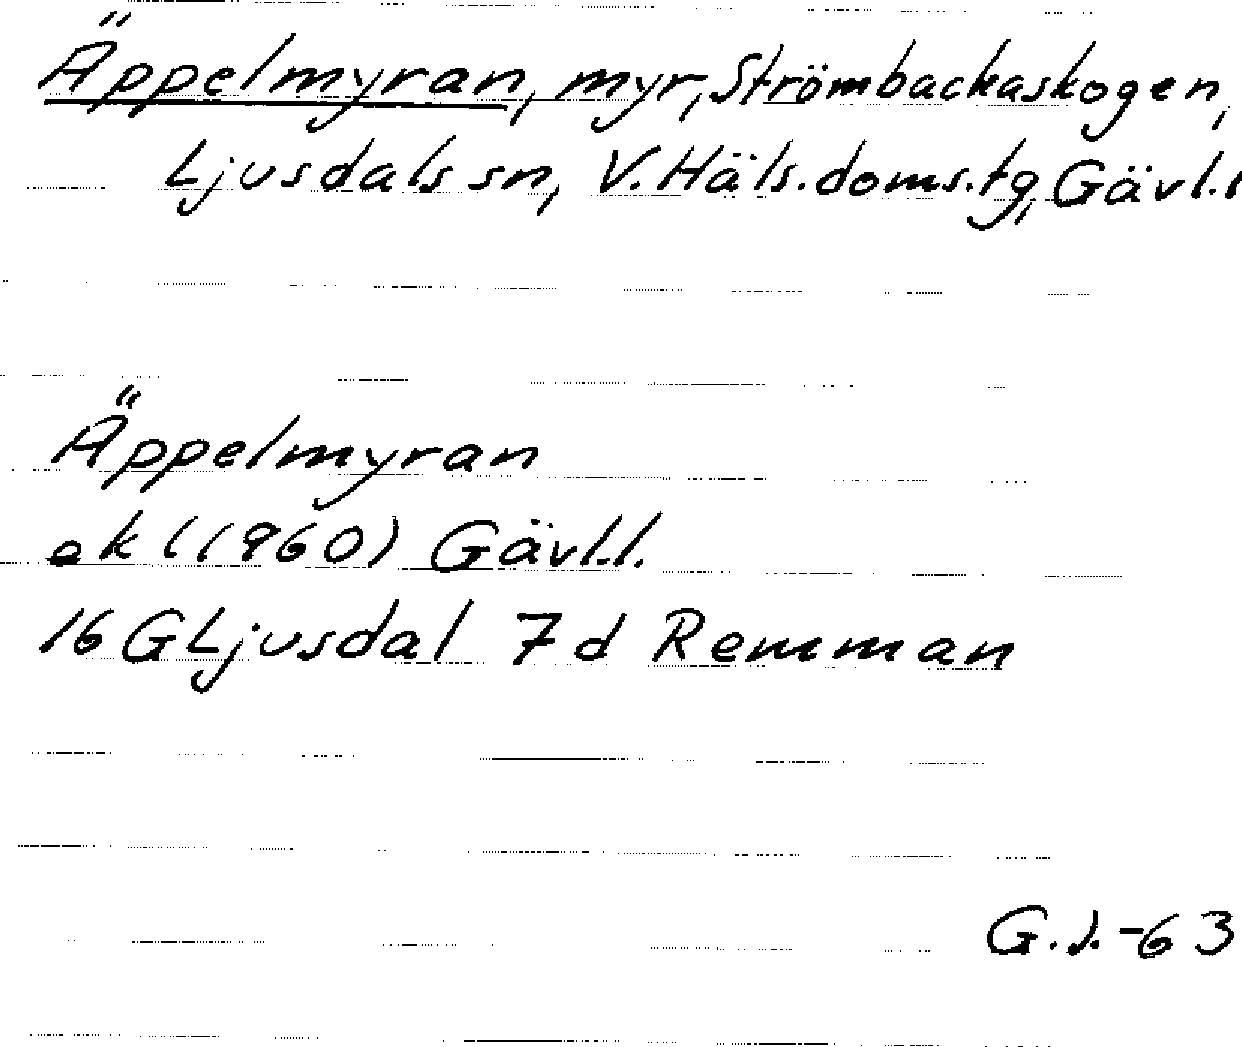 Äppelmyran, myr, Strömbackaskogen,
Ljusdals sn, V. Häls. doms.tg, Gävl.l
Äppelmyran
ek (1960) Gävl.l.
16 G Ljusdal 7 d Remman
G.J. -63